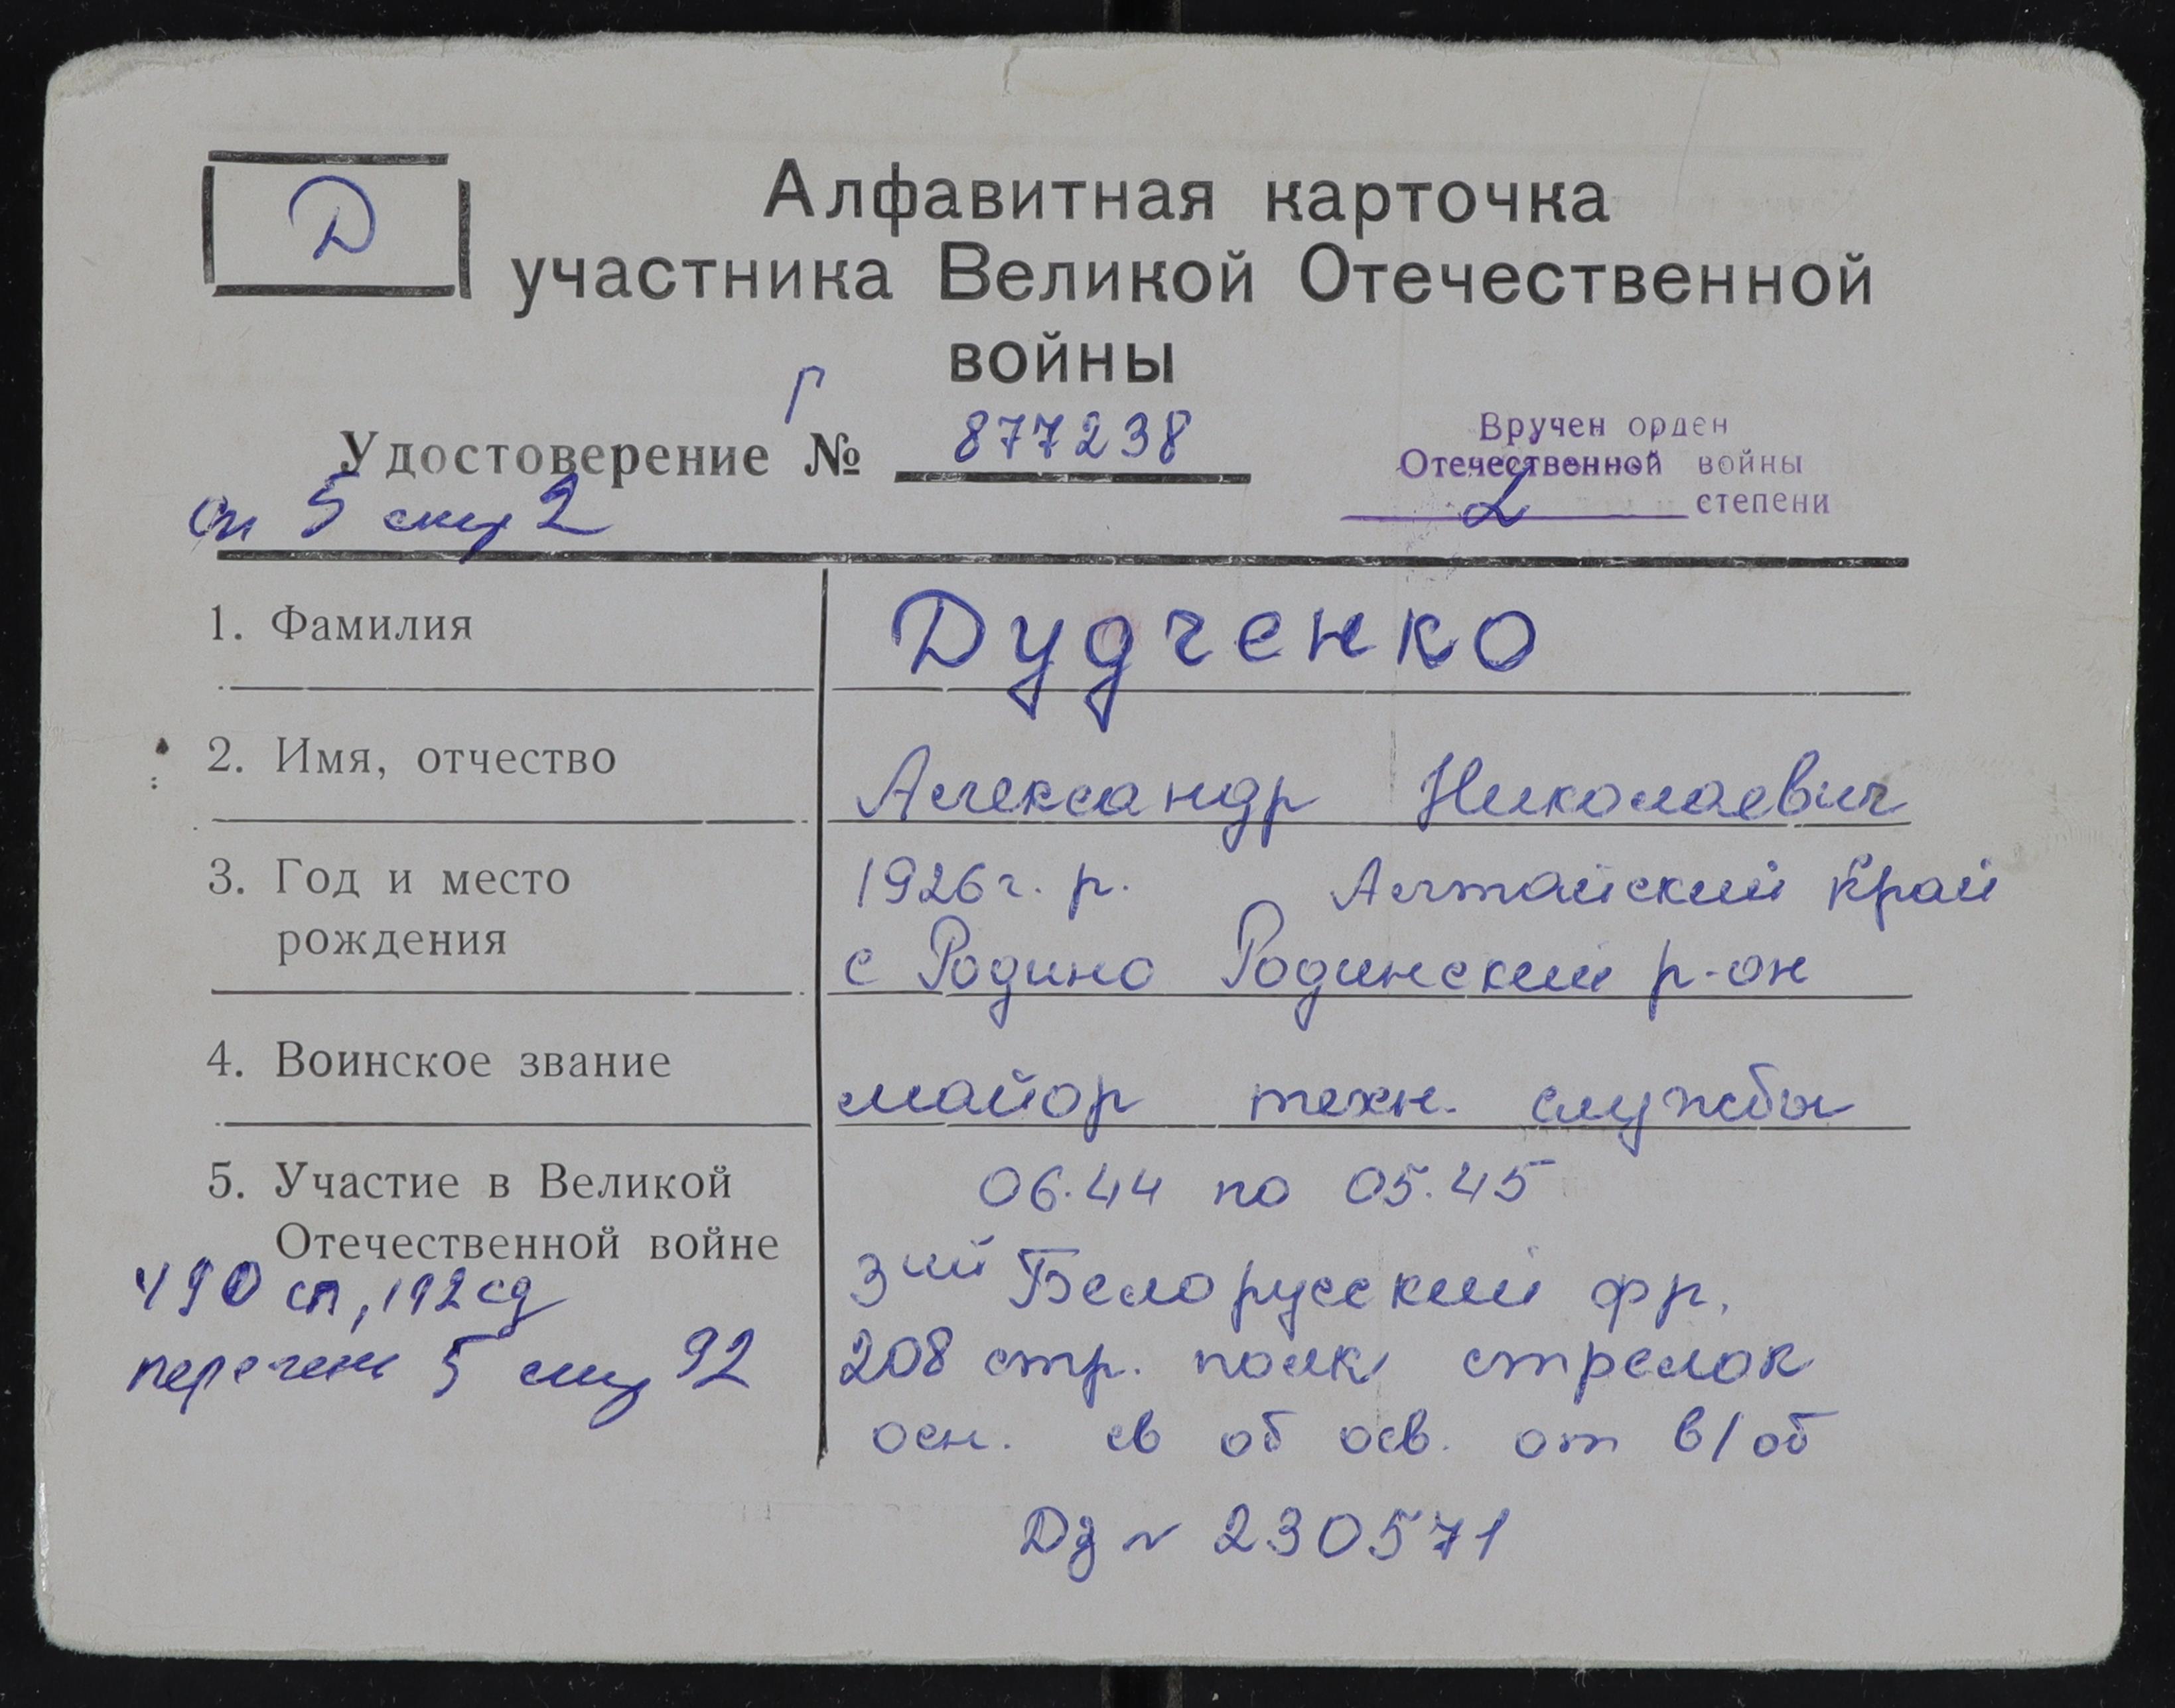 Д
Алфавитная карточка
участника Великой Отечественной
войны
Г
Удостоверение № 877238
Вручен орден
Отечественной войны
2 степени
сп 5 стр 2
1. Фамилия
Дудченко
2. Имя, отчество
Александр Николаевич
3. Год и место
рождения
1926г. р. Алтайский край
с Родино Родинский р-он
4. Воинское звание
майор техн. службы
5. Участие в Великой
Отечественной войне
06.44 по 05.45
3ий Белорусский фр.
208 стр. полк стрелок
осн. св об осв. от в/об
490 сп, 192 сд
перечень 5 92
Дз № 230571